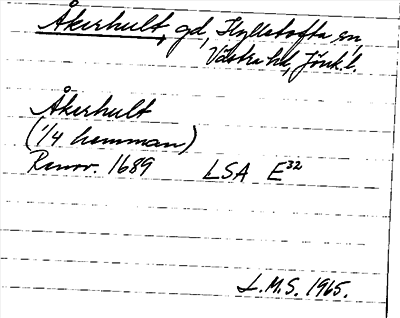 Åkerhult, gd, Hyllstofta sn,
Västra hd, Jönk. l.
Åkerhult
(1/4 hemman)
Renov. 1689 LSA E32
L.M.S. 1965.